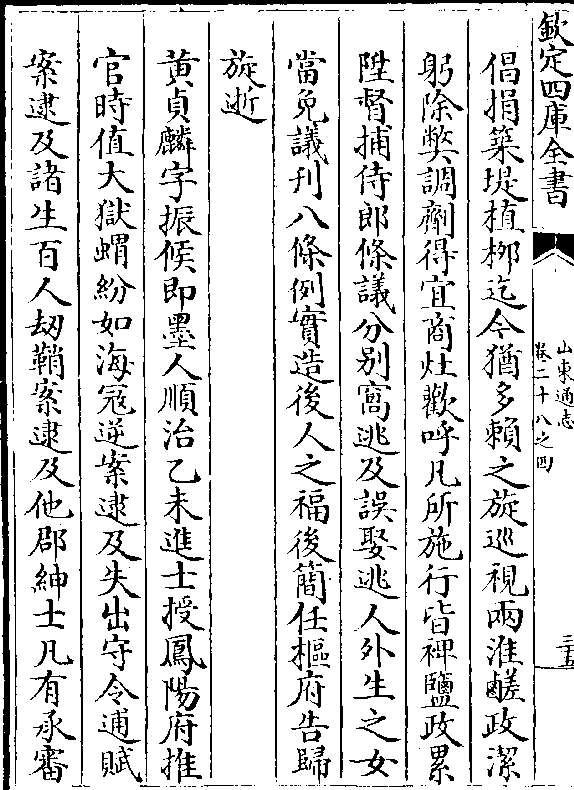 欽定四庫全書
山東通志
卷二十八之四
三五
倡捐築堤植桞迄今猶多賴之旋巡視兩淮鹺政潔
躬除弊調劑得宜商灶歡呼凡所施行皆裨鹽政累
陞督捕侍郎條議分别窩逃及誤娶逃人外生之女
當免議刋八條例實造後人之福後簡任樞府告歸
旋逝
黄貞麟字振侯即墨人順治乙未進士授鳳陽府推
官時值大獄蝟紛如海冦逆案逮及失出守令逋賦
案逮及諸生百人刼鞘案逮及他郡紳士凡有承審